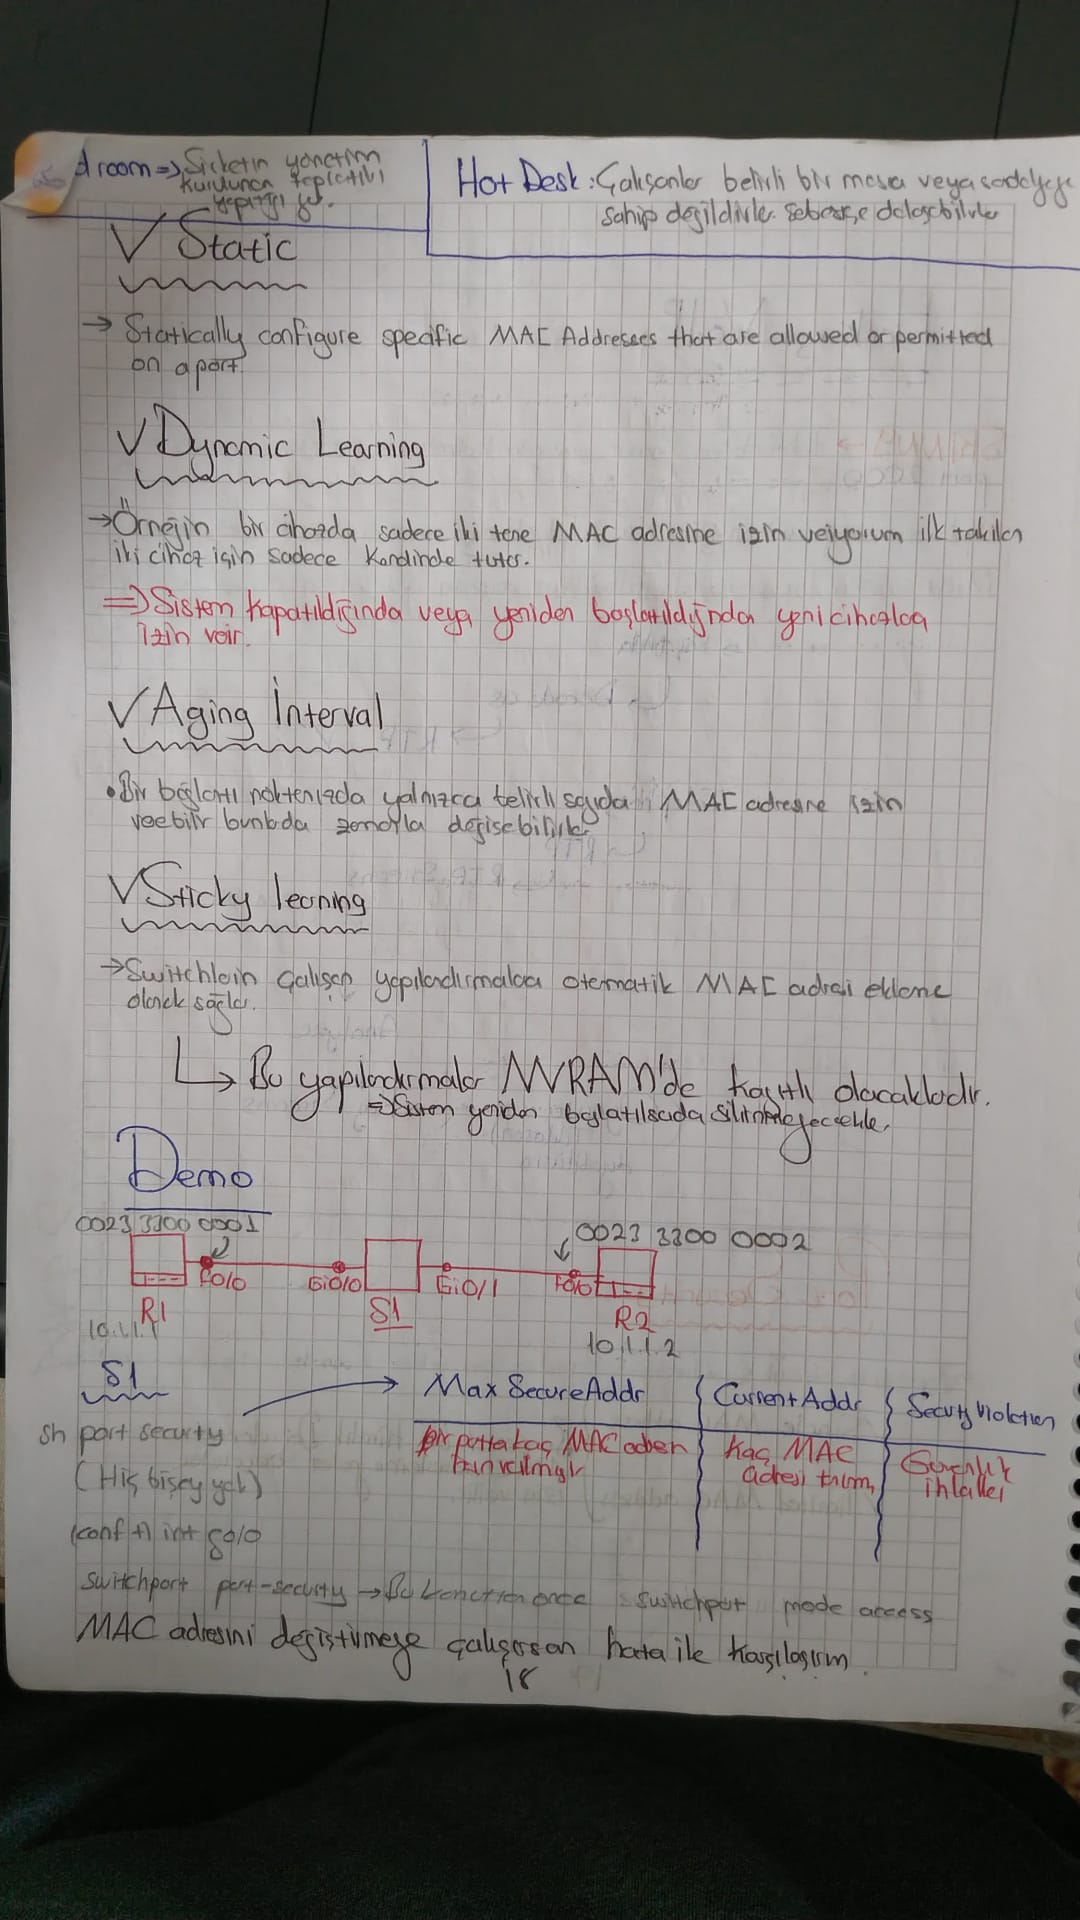 d room => Şirketin yönetim
kurulunun toplantı
yaptığı yer.
Hot Desk: Çalışanlar belirli bir masa veya sandalyeye
sahip değildirler. Serbestçe dolaşabilirler
✓ Static
→ Statically configure specific MAC Addresses that are allowed or permitted
on a port.
✓ Dynamic Learning
→ Örneğin bir cihazda sadece iki tane MAC adresine izin veriyorum ilk takılan
iki cihaz için sadece kendinde tutar.
=> Sistem kapatıldığında veya yeniden başlatıldığında yeni cihazlara
izin verir.
✓ Aging İnterval
• Bir bağlantı noktanızda yalnızca belirli sayıda MAC adresine izin
verebilir bunlarda zamanla değişebilirler
✓ Sticky learning
→ Switchlerin çalışan yapılandırmalara otomatik MAC adresi ekleme
olarak sağlar.
↳ Bu yapılandırmalar NVRAM'de kayıtlı olacaklardır.
=> Sistem yeniden başlatılsada silinmeyecekler.
Demo
0023 3300 0001
0023 3300 0002
F0/0 Gi0/0 Gi0/1 F0/0
R1 S1 R2
10.1.1.1
10.1.1.2
S1
Max Secure Addr Current Addr Security Violation
sh port security
Bir portta kaç MAC adresi Kaç MAC Güvenlik
adresi ihlalleri
(Hiç bişey yok)
(conf t) int g0/0
switchport port-security → Bu komuttan önce switchport mode access
MAC adresini değiştirmeye çalışırsan hata ile karşılaşırım.
18